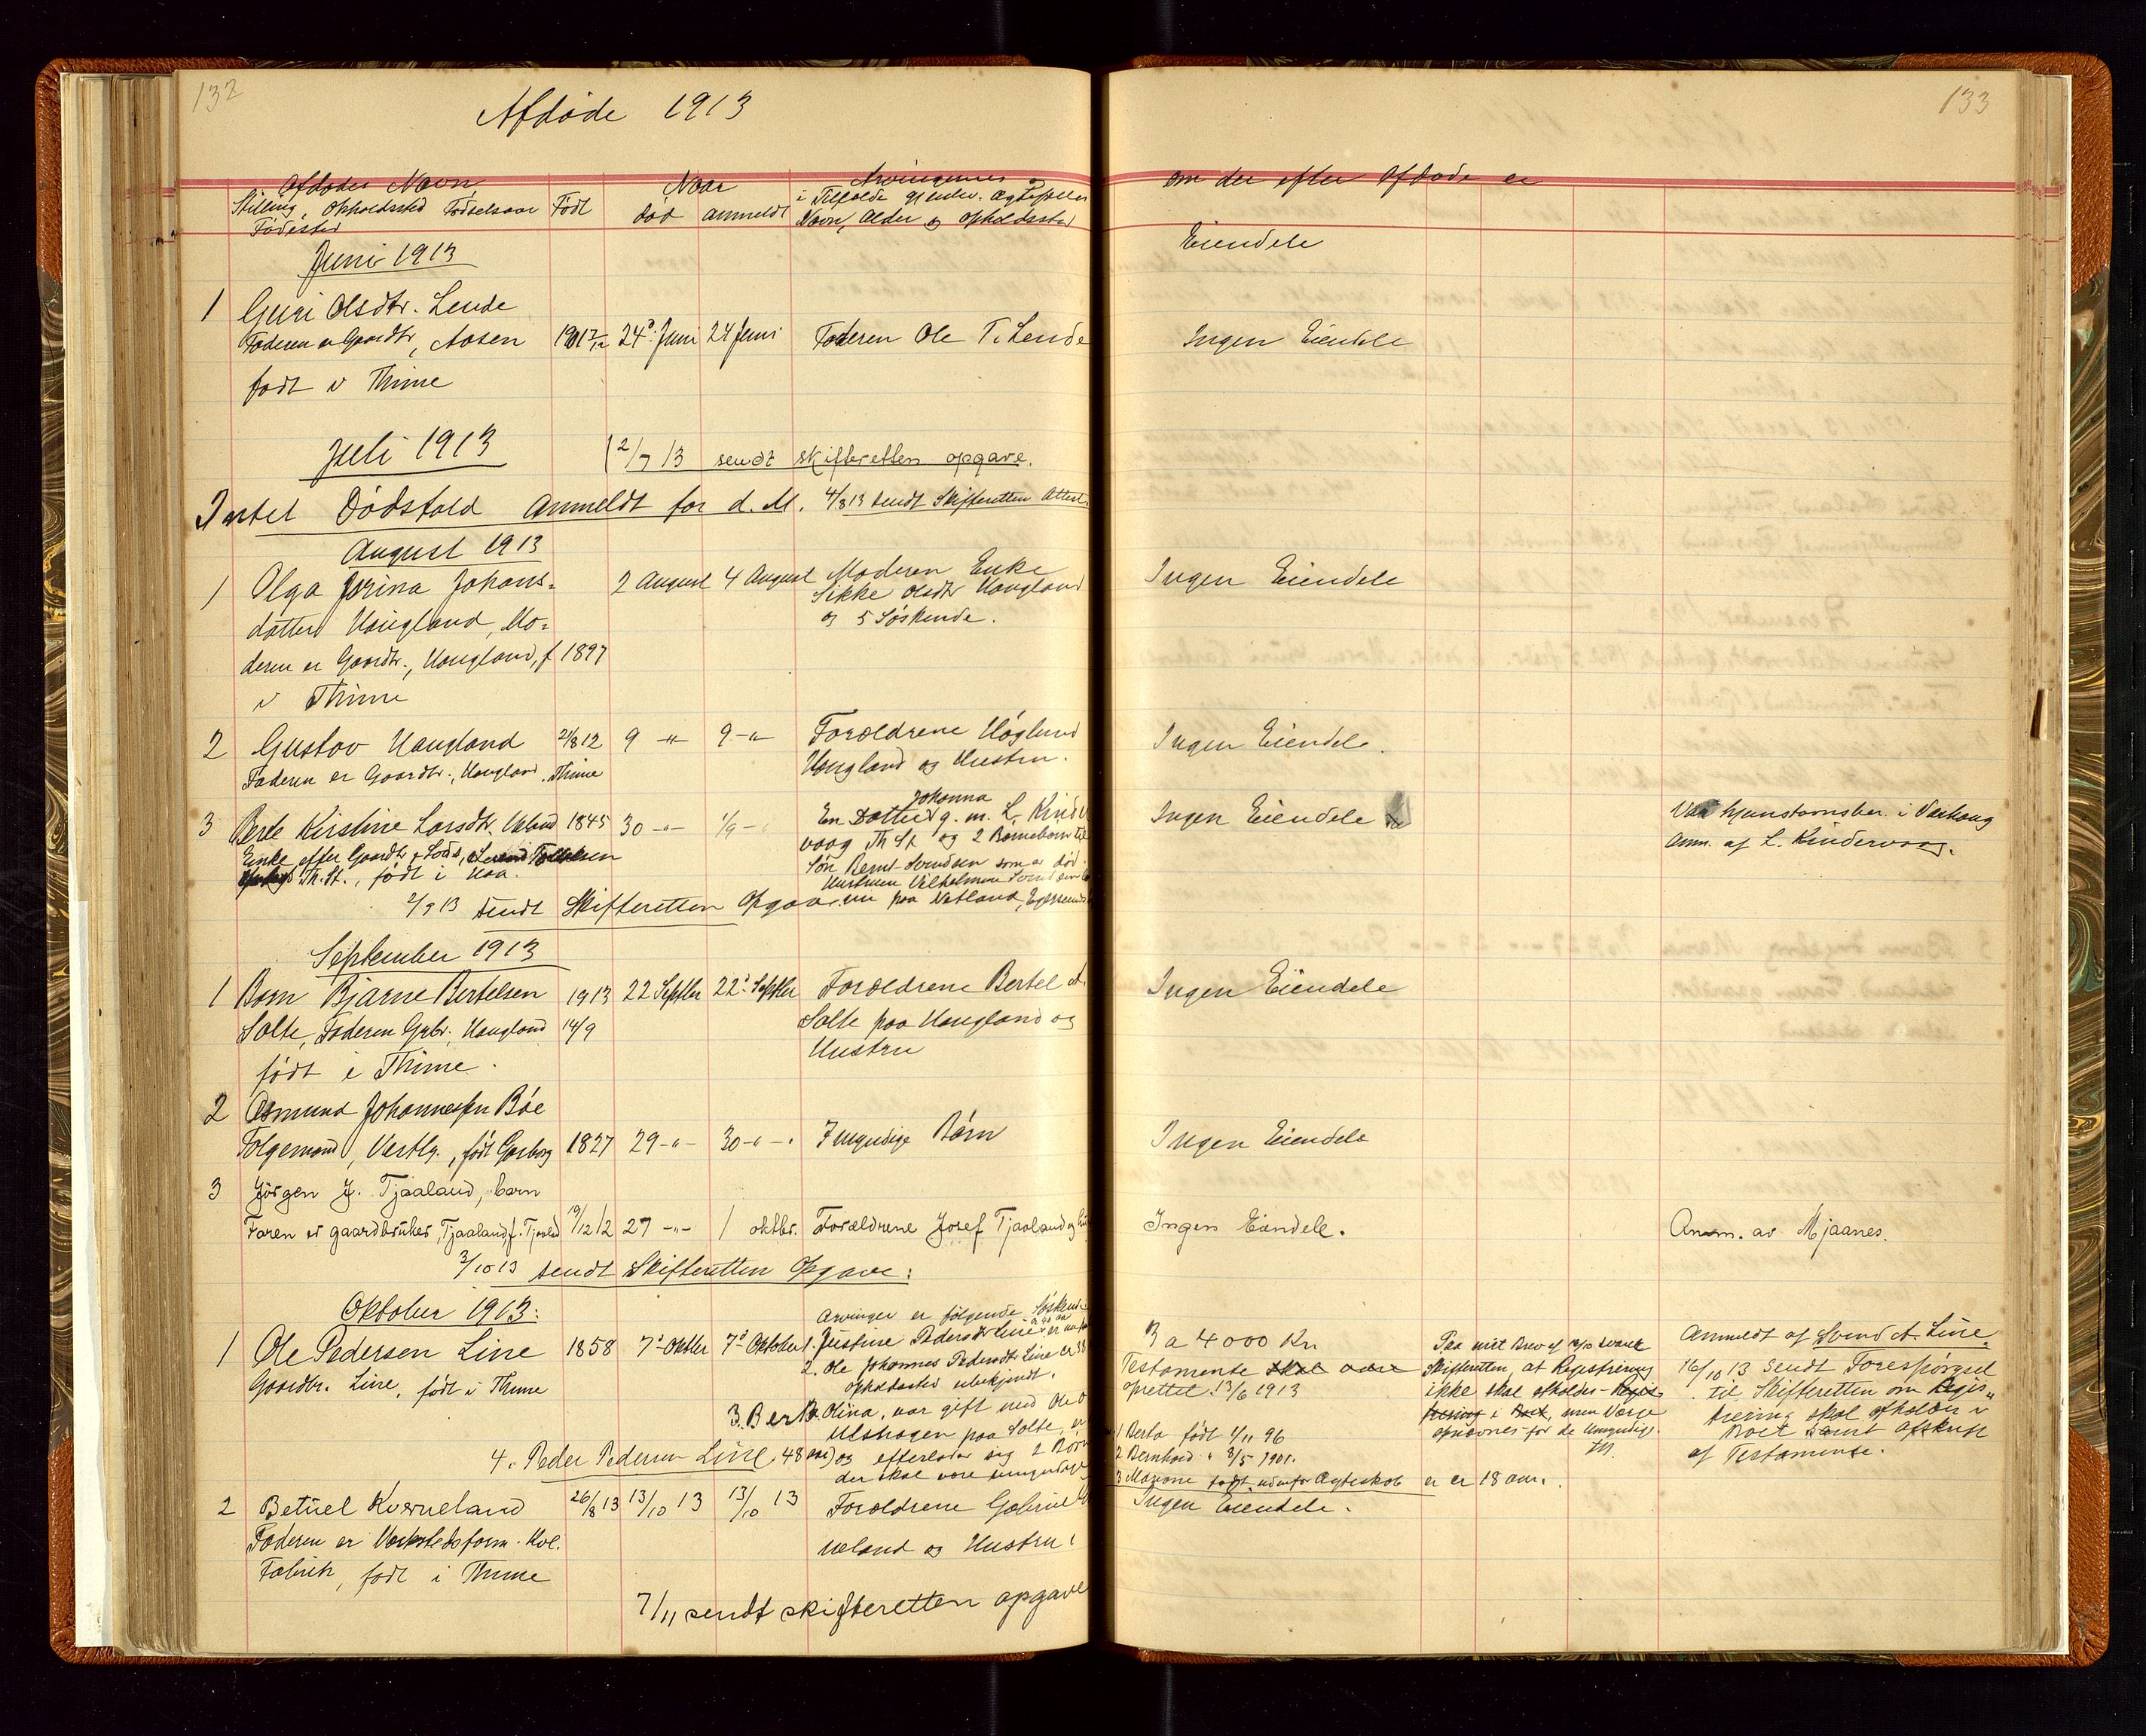 132
Afdøde 1913
Afdødes Navn,
Stilling, Opholdssted Fødselsaar
Fødested
Født
Naar
død anmeldt
Arvingernes og
i Tilfælde gjenlev. Ægtefælles
Navn, Alder og Opholdssted
Juni 1913
1 Guri Olsdtr. Lende
Faderen er Gaardbr, Aasen
født i Thime
24 Juni 24 Juni Faderen Ole T. Lende
Juli 1913
2/7 13 sendt skifteretten opgave.
Intet Dødsfald Anmeldt for d. M. 4/8 13 sendt Skifteretten Attest
August 1913
1 Olga Jorina Johans-
datter Haugland, Mo-
deren er Gaardbr., Haugland, f 1897
i Thime
2 August 4 August Moderen Enke
Sikke Olsdtr Haugland
og 5 Søskende.
2 Gustav Haugland 21/8 12 9 -"- 9 -"- Forældrene Høglund
Faderen er Gaardbr., Haugland. Thime
Haugland og Hustru.
3 Berte Kirstine Larsdtr. Ueland 1845 30 -"- 1/9 -"-
Enke efter Gaardbr
Th. St., født i Haa.
Johanna
En Datter g. m. L. Kinder
vaag Th St og 2 Børnebørn til
Søn Bernt Svendsen som er død.
Hustruen Vilhelmine
2/9 13 sendt Skifteretten Opgave. nu paa Netland, Egersund
September 1913
1 Barn Bjarne Bertelsen 1913 22 Septbr 22 Septbr Forældrene Bertel A.
Salte, Faderen Grbr. Haugland 14/9 Salte paa Haugland og
født i Thime. Hustru
2 Osmund Johannessen Bøe
Folgemand, Vestly., født Garborg 1827 29 -"- 30 -"- Imyndige Børn
3 Jörgen J. Tjaaland, barn
Faren er gaardbruker, Tjaaland, f. Tjaaland 19/12 12 29 -"- 1 oktbr. Forældrene Josef Tjaaland og
3/10 13 sendt Skifteretten Opgave:
Oktober 1913:
1 Ole Pedersen Line 1858 7 Oktbr 7 Oktober
Gaardbr. Line, født i Thime
Arvinger er følgende Søskende
1. Justine Pedersdtr Line
2. Ole Johannes Pedersdt. Line er 38
opholdssted ubekjendt.
3. Berte Olina, var gift med Ole O
Ulshagen paa Salte, er
4. Peder Pedersen Line 48 aar og efterlader sig 2 Børn
der skal være umyndige
2 Betuel Kverneland 26/8 13 13/10 13 13/10 13 Forældrene Gabriel
Faderen er Verkstedsform. Kvl. Ueland og Hustru
Fabrik, født i Thime
7/11 sendt skifteretten opgave
133
om der efter Afdøde er
Eiendele
Ingen Eiendele
Ingen Eiendele
Ingen Eiendele.
Ingen Eiendele
Var hjemstavnsber. i Varhaug
Anm. af L. Kindervaag.
Ingen Eiendele
Ingen Eiendele
Ingen Eiendele.
Anm. av Mjaanes.
3 a 4000 Kr.
Testamente
oprettet 13/6 1913
1 Berta født 4/11 96
2 Bernhard " 3/5 1901.
3 Marione født udenfor Ægteskab er er 18 aar.
Ingen Eiendele.
Paa mit Brev af 16/10 svarte
Skifteretten, at Registrering
ikke skal afholdes - Regis
trering i Boet, men Værge
opnævnes for de Umyndige.
Anmeldt af Svend A. Line.
16/10 13 sendt Forespørgsel
til Skifteretten om Regis-
trering skal afholdes i
Boet samt Afskrift
af Testamente.